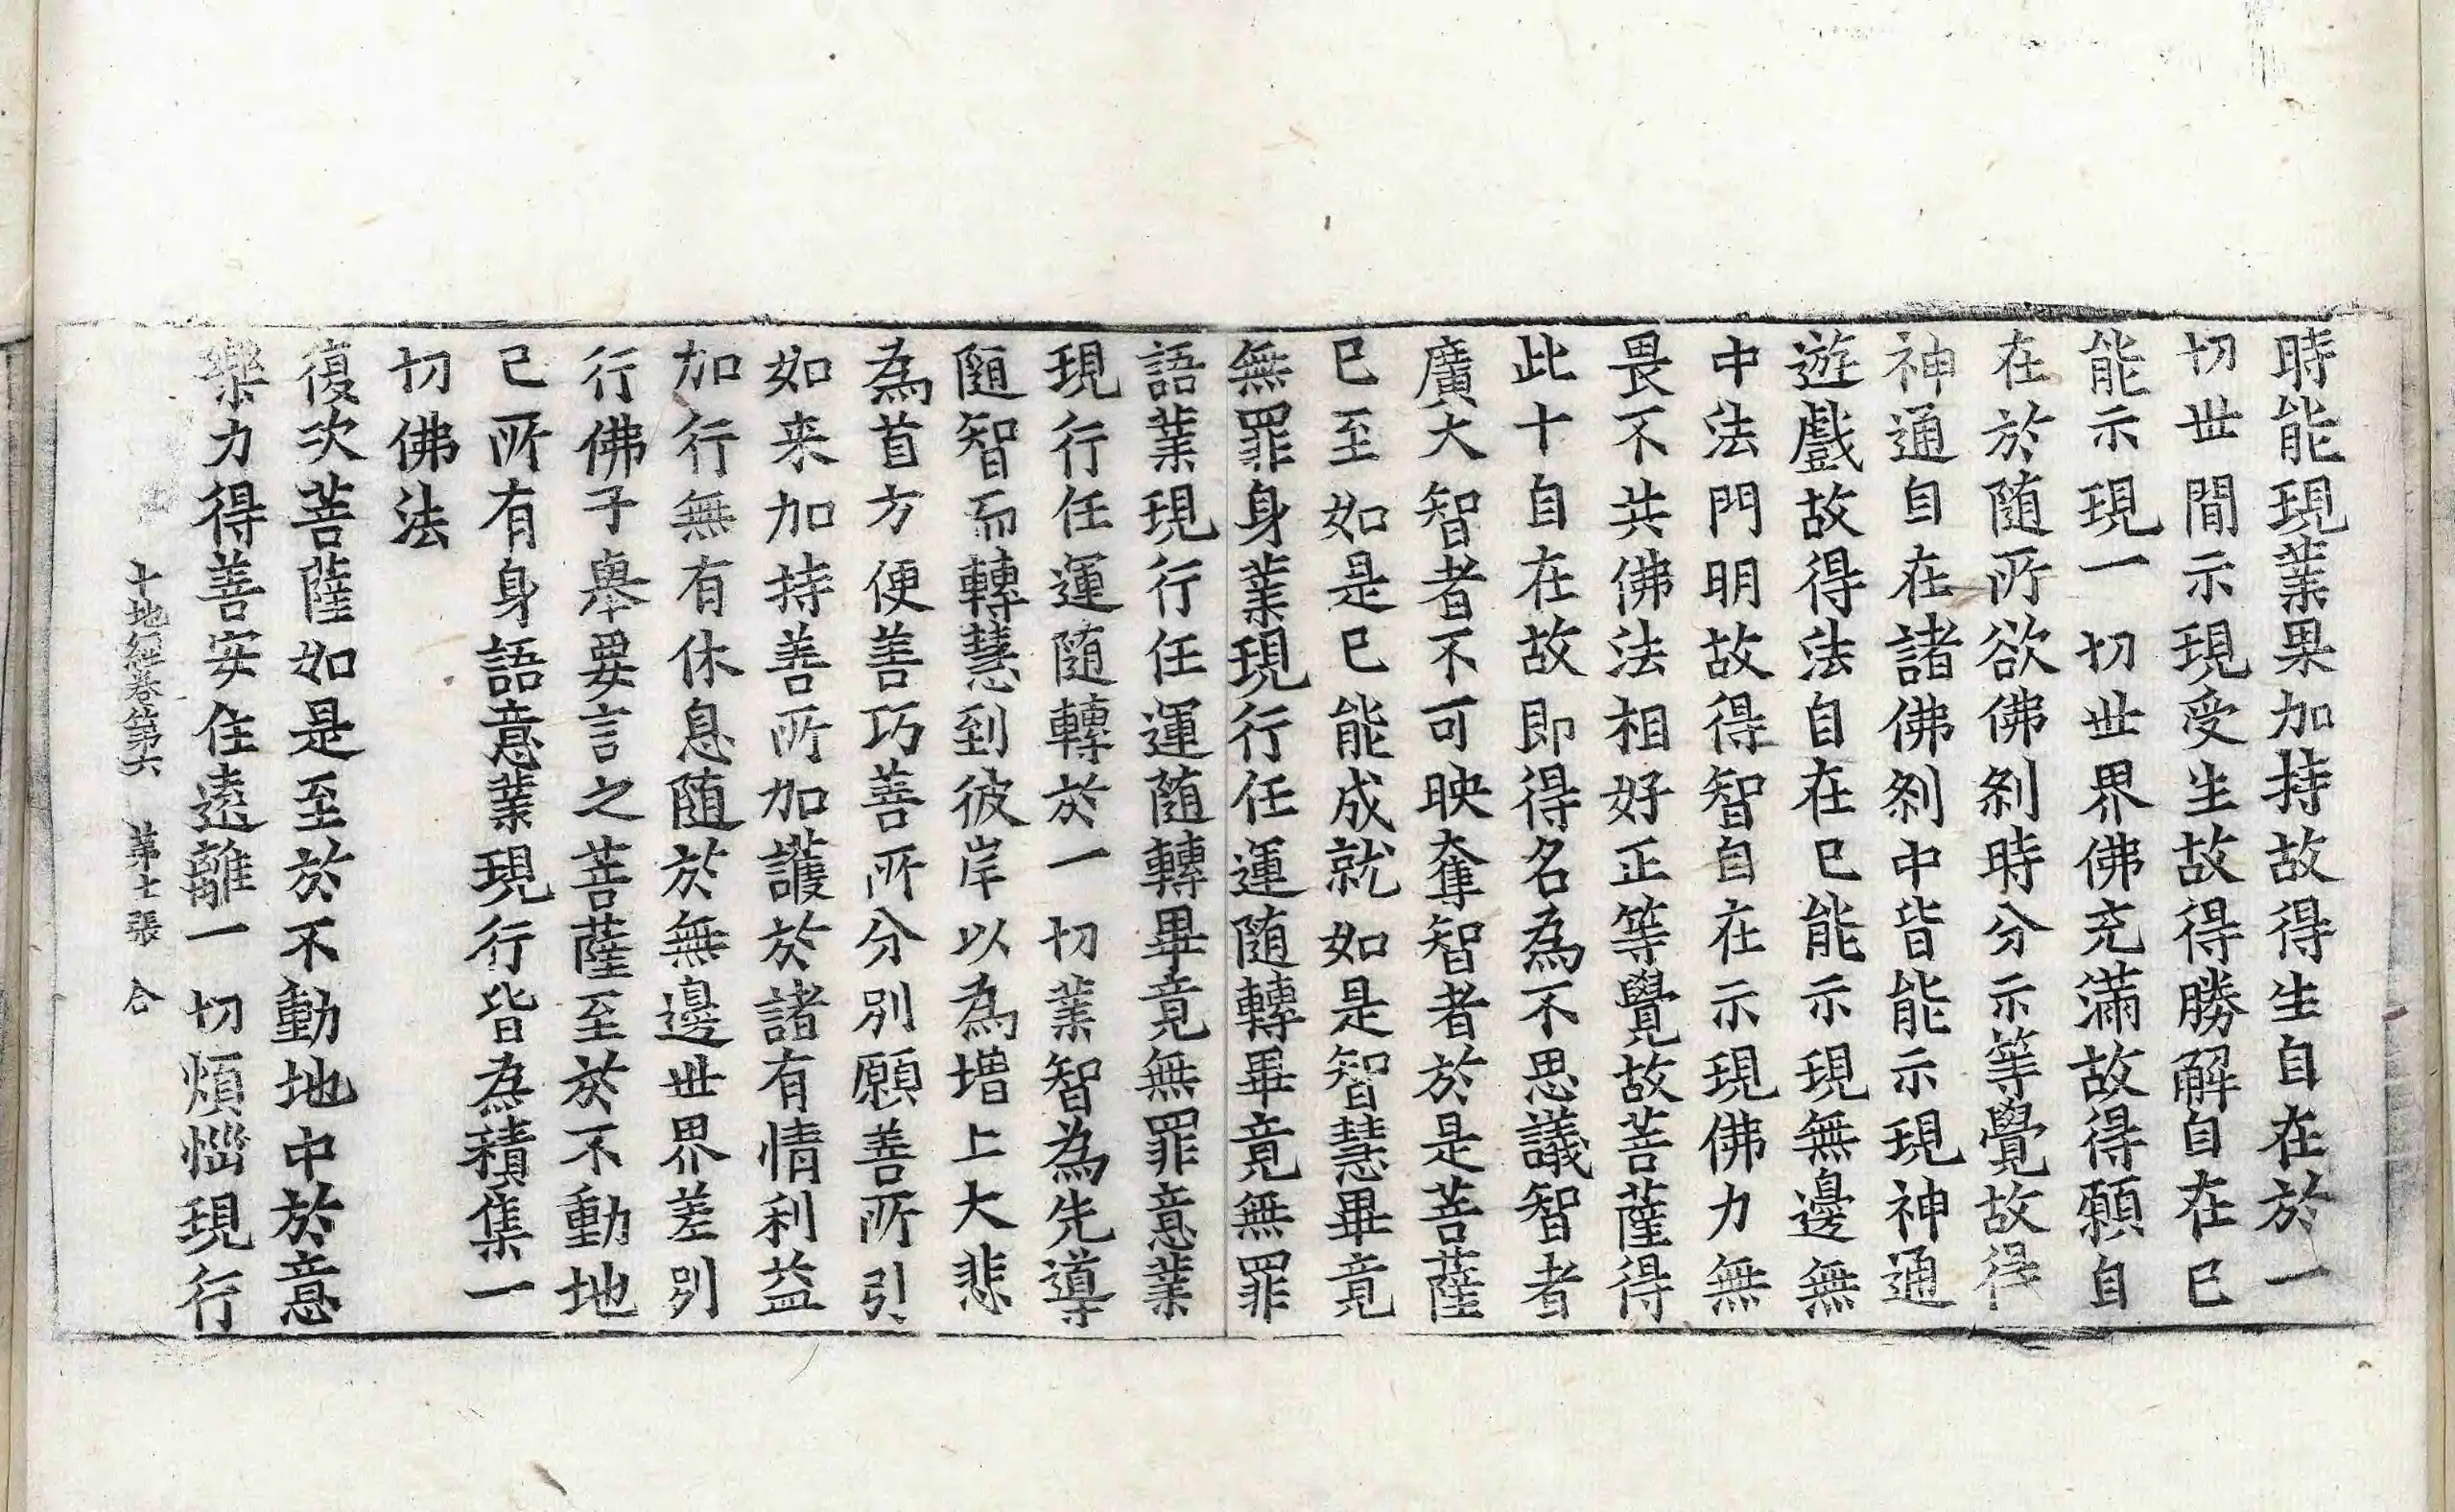 時能現業果加持故得生自在於一
切世間示現受生故得勝解自在已
能示現一切世界佛充滿故得願自
在於随所欲佛刹時分示等覺故得
神通自在諸佛刹中皆能示現神通
遊戲故得法自在已能示現無邊無
中法門明故得智自在示現佛力無
畏不共佛法相好正等覺故菩薩得
此十自在故即得名為不思議智者
廣大智者不可映奪智者於是菩薩
已至如是已能成就如是智慧畢竟
無罪身業現行任運随轉畢竟無罪
語業現行任運随轉畢竟無罪意業
現行任運随轉於一切業智為先導
随智而轉慧到彼岸以為增上大悲
為首方便善巧善所分別願善所引
如来加持善所加護於諸有情利益
加行無有休息随於無邊世界差別
行佛子舉要言之菩薩至於不動地
已所有身語意業現行皆為積集一
切佛法
復次菩薩如是至於不動地中於意
樂力得善安住遠離一切煩惱現行
十地經卷第六　第七張　合